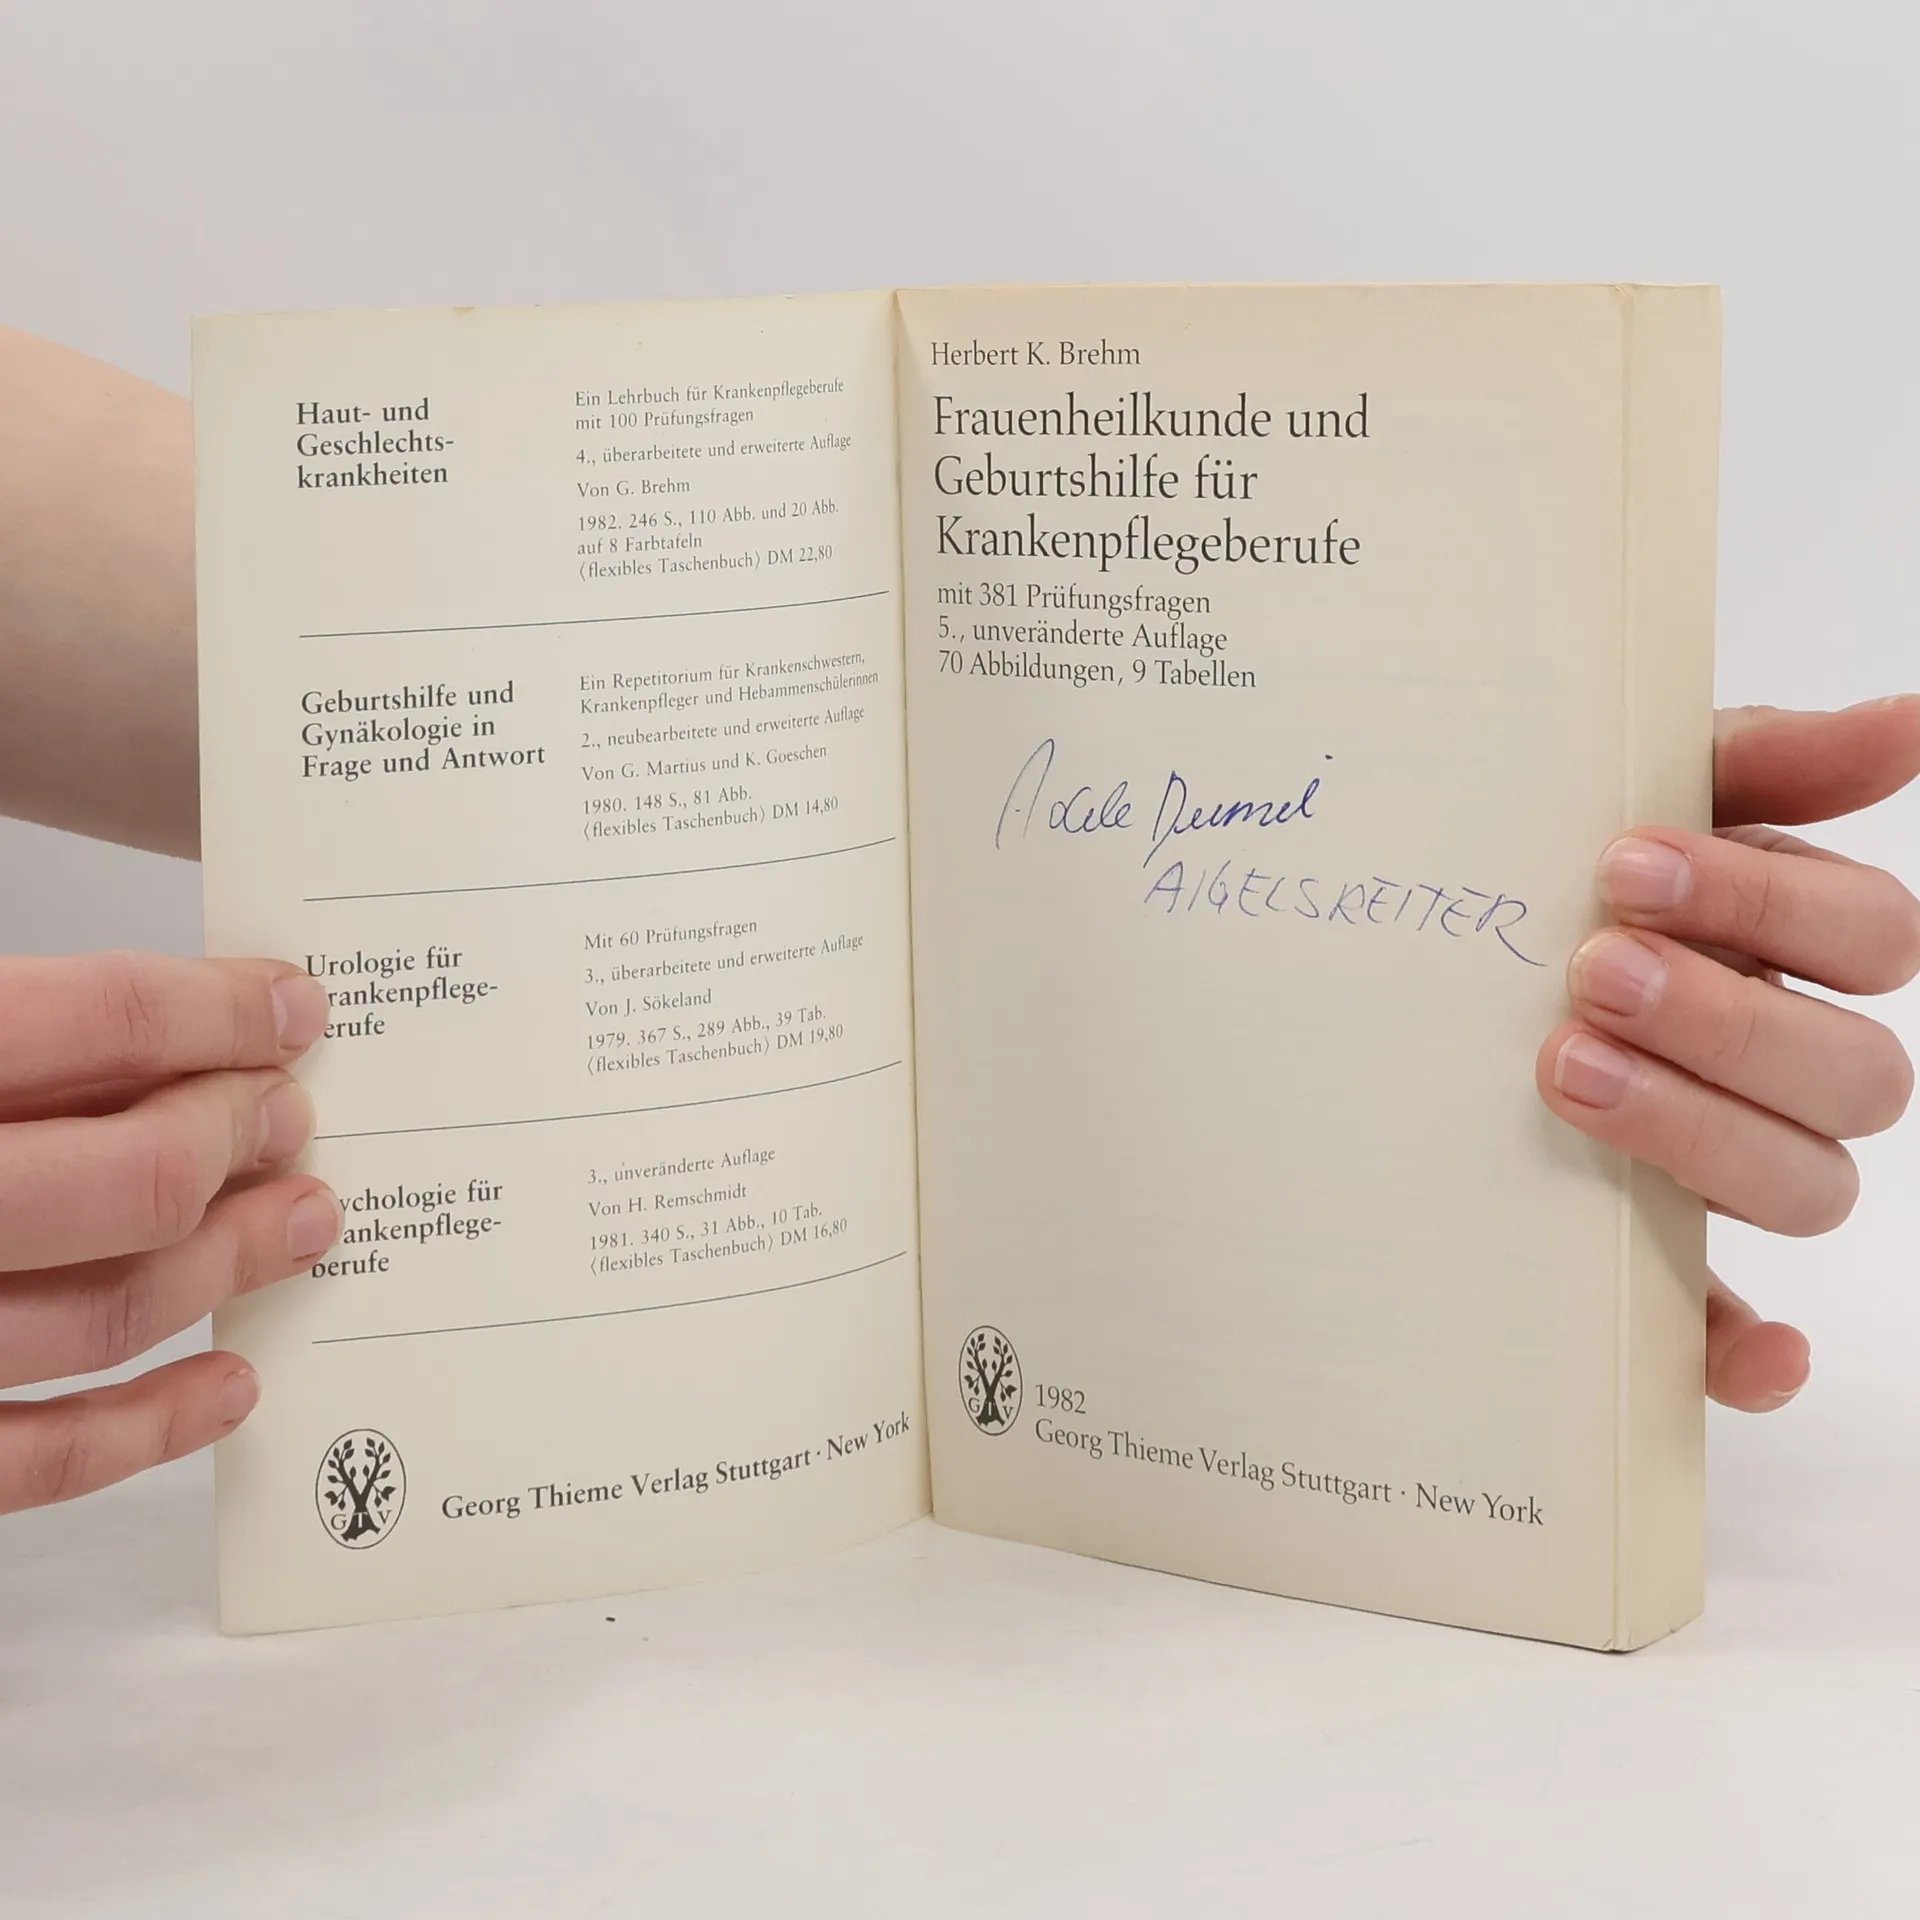 Haut- und
Geschlechts-
krankheiten
Ein Lehrbuch für Krankenpflegeberufe
mit 100 Prüfungsfragen
4., überarbeitete und erweiterte Auflage
Von G. Brehm
1982. 246 S., 110 Abb. und 20 Abb.
auf 8 Farbtafeln
⟨flexibles Taschenbuch⟩ DM 22,80
Geburtshilfe und
Gynäkologie in
Frage und Antwort
Ein Repetitorium für Krankenschwestern,
Krankenpfleger und Hebammenschülerinnen
2., neubearbeitete und erweiterte Auflage
Von G. Martius und K. Goeschen
1980. 148 S., 81 Abb.
⟨flexibles Taschenbuch⟩ DM 14,80
Urologie für
rankenpflege-
erufe
Mit 60 Prüfungsfragen
3., überarbeitete und erweiterte Auflage
Von J. Sökeland
1979. 367 S., 289 Abb., 39 Tab.
⟨flexibles Taschenbuch⟩ DM 19,80
ychologie für
ankenpflege-
berufe
3., unveränderte Auflage
Von H. Remschmidt
1981. 340 S., 31 Abb., 10 Tab.
⟨flexibles Taschenbuch⟩ DM 16,80
GTV
Georg Thieme Verlag Stuttgart · New York
Herbert K. Brehm
Frauenheilkunde und
Geburtshilfe für
Krankenpflegeberufe
mit 381 Prüfungsfragen
5., unveränderte Auflage
70 Abbildungen, 9 Tabellen
Adele
AIGELSREITER
GTV
1982
Georg Thieme Verlag Stuttgart · New York